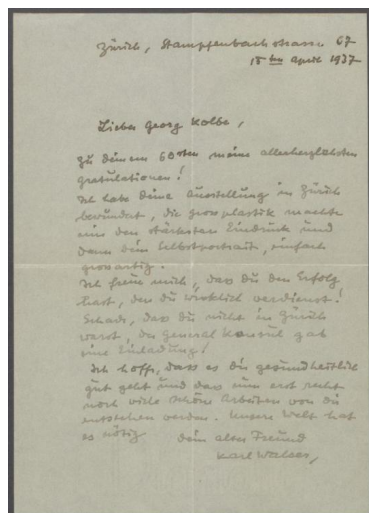 Zürich, Stampfenbachstrasse 67
15ten April 1937
Lieber Georg Kolbe,
zu deinem 60sten meine allerherzlichsten
gratulationen!
Ich habe deine Ausstellung in Zürich
bewundert, die grossplastik machte
mir den stärksten Eindruck und
dann dein Selbstportrait, einfach
grossartig.
Ich freue mich, dass du den Erfolg
hast, den du wirklich verdienst!
Schade, dass du nicht in Zürich
warst, der General Konsul gab
eine Einladung!
Ich hoffe, dass es dir gesundheitlich
gut geht und dass nun erst recht
noch viele schöne Arbeiten von dir
entstehen werden. Unsere Welt hat
es nötig
dein alter Freund
Karl Walser,